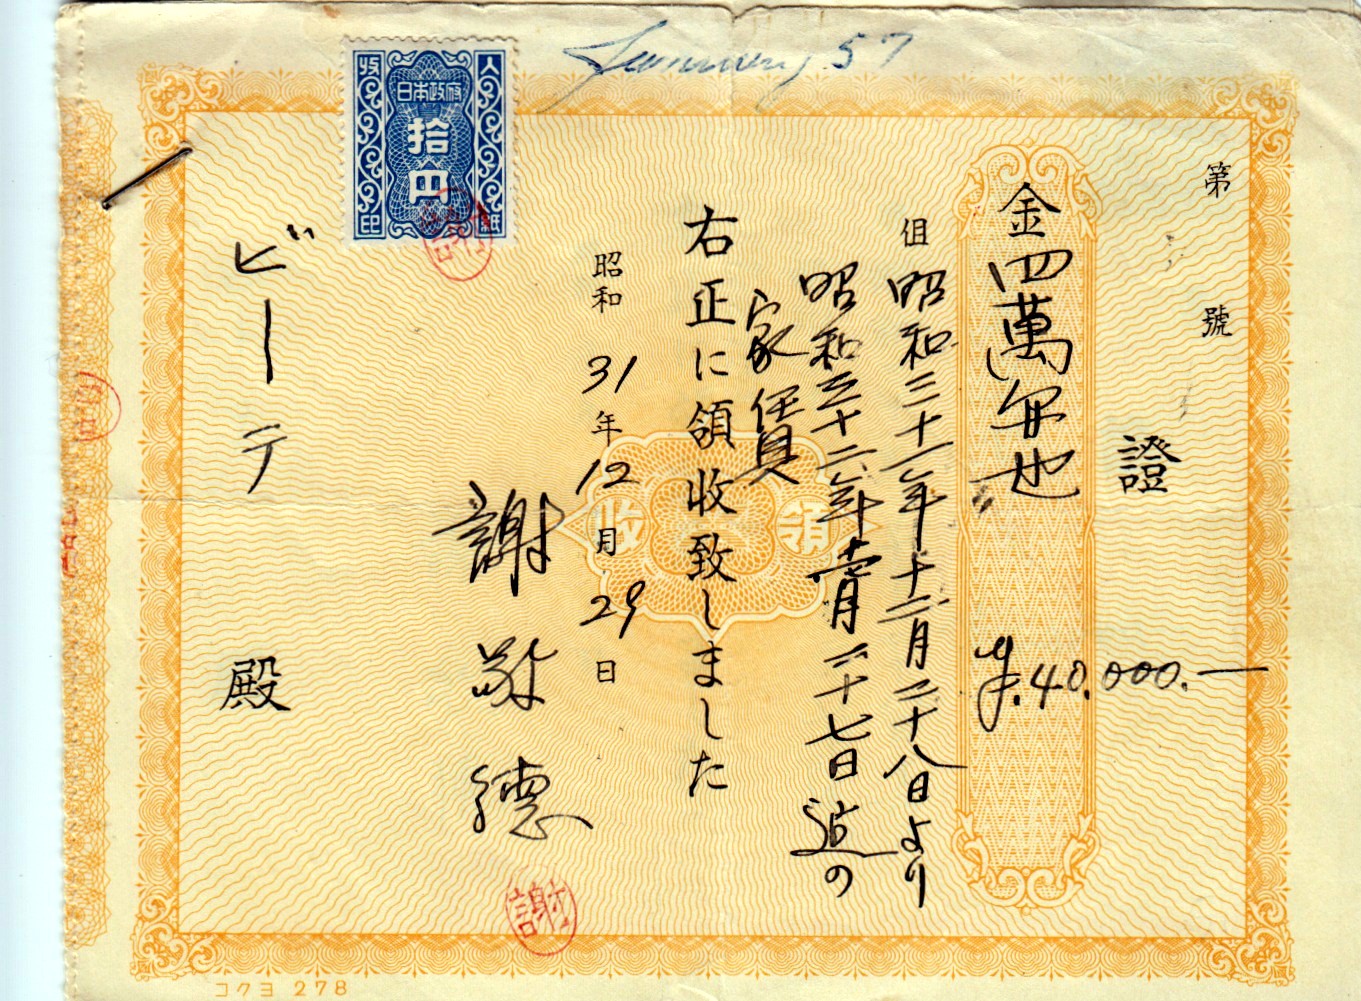 January 57
第 號
證
金四萬円也
¥.40.000.―
但 昭和三十一年十二月二十八日より
昭和三十二年壹月二十七日迄の
家賃
右正に領收致しました
昭和 31年12月29日
謝敬德
謝
ビーテ 殿
収入印紙
日本政府
拾円
領收
コクヨ 278